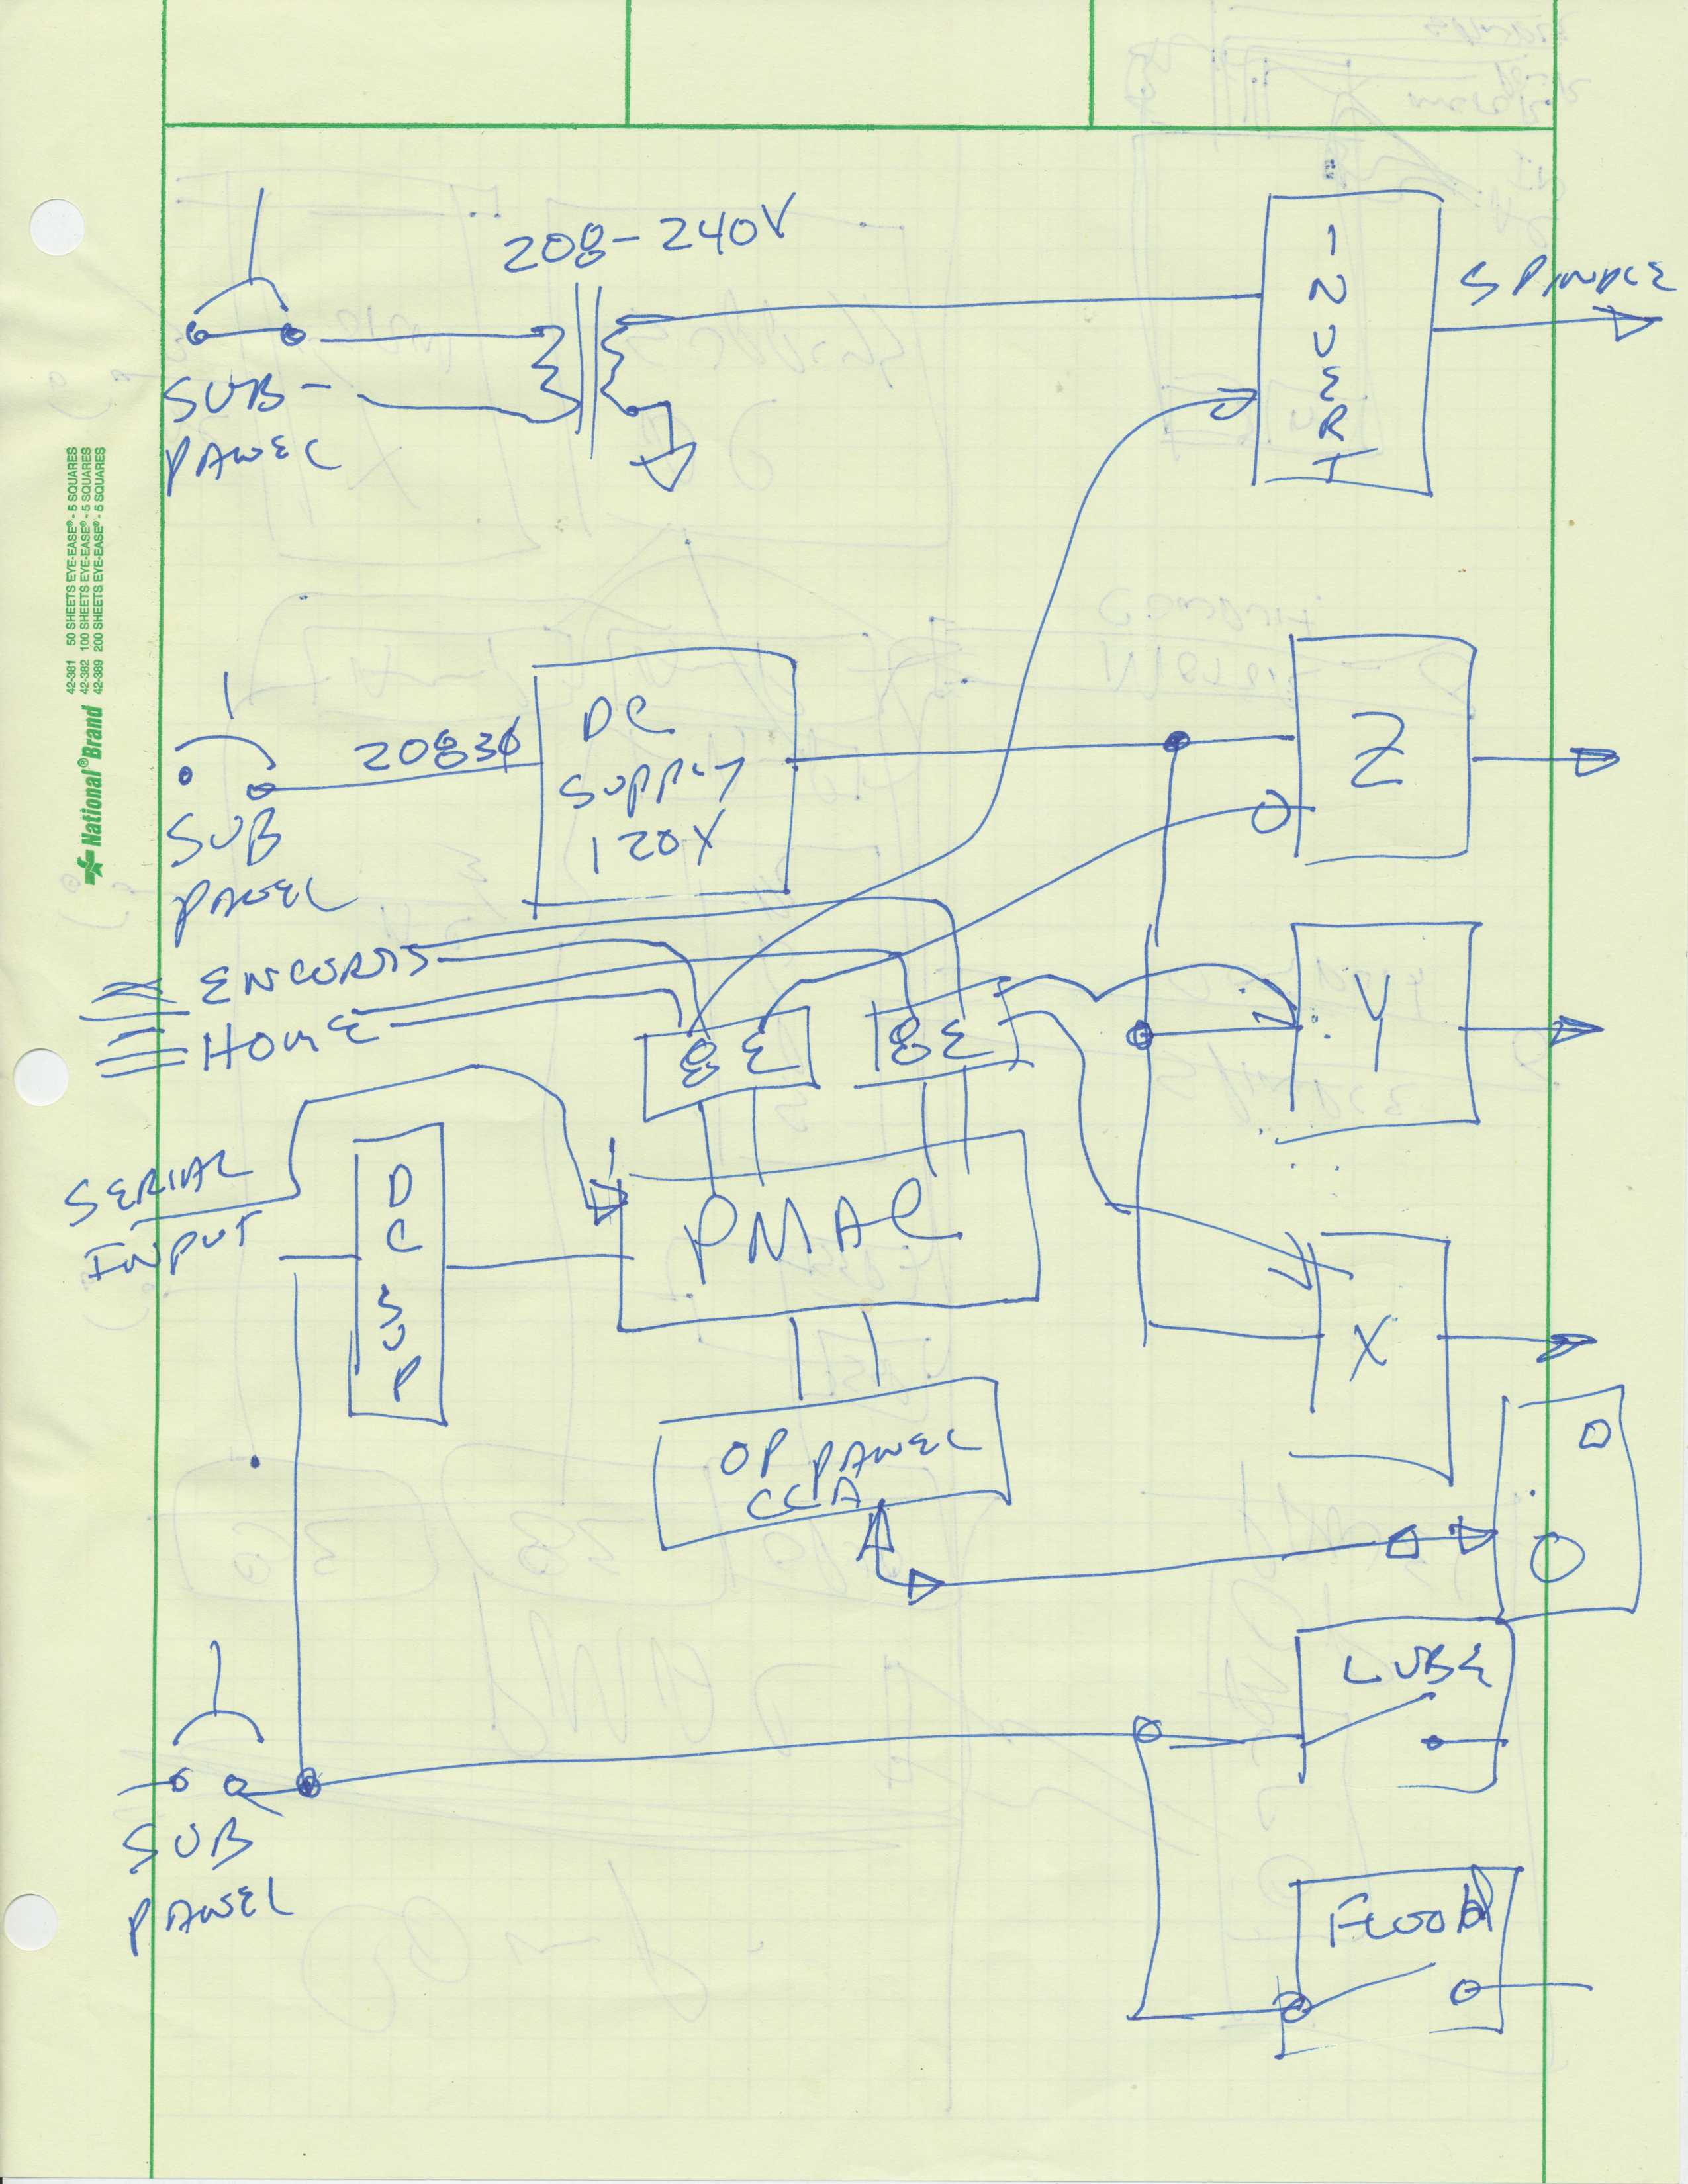 208-240V
INVERT
SPINDLE
SUB-
PANEL
DC
SUPPLY
120V
2083φ
Z
SUB
PANEL
ENCODERS
HOME
8E
8E
Y
SERIAL
INPUT
DC SUP
PMAC
X
OP PANEL
CCA
LUBE
SUB
PANEL
FLOOD
42-381 50 SHEETS EYE-EASE® - 5 SQUARES
42-382 100 SHEETS EYE-EASE® - 5 SQUARES
42-389 200 SHEETS EYE-EASE® - 5 SQUARES
National®Brand